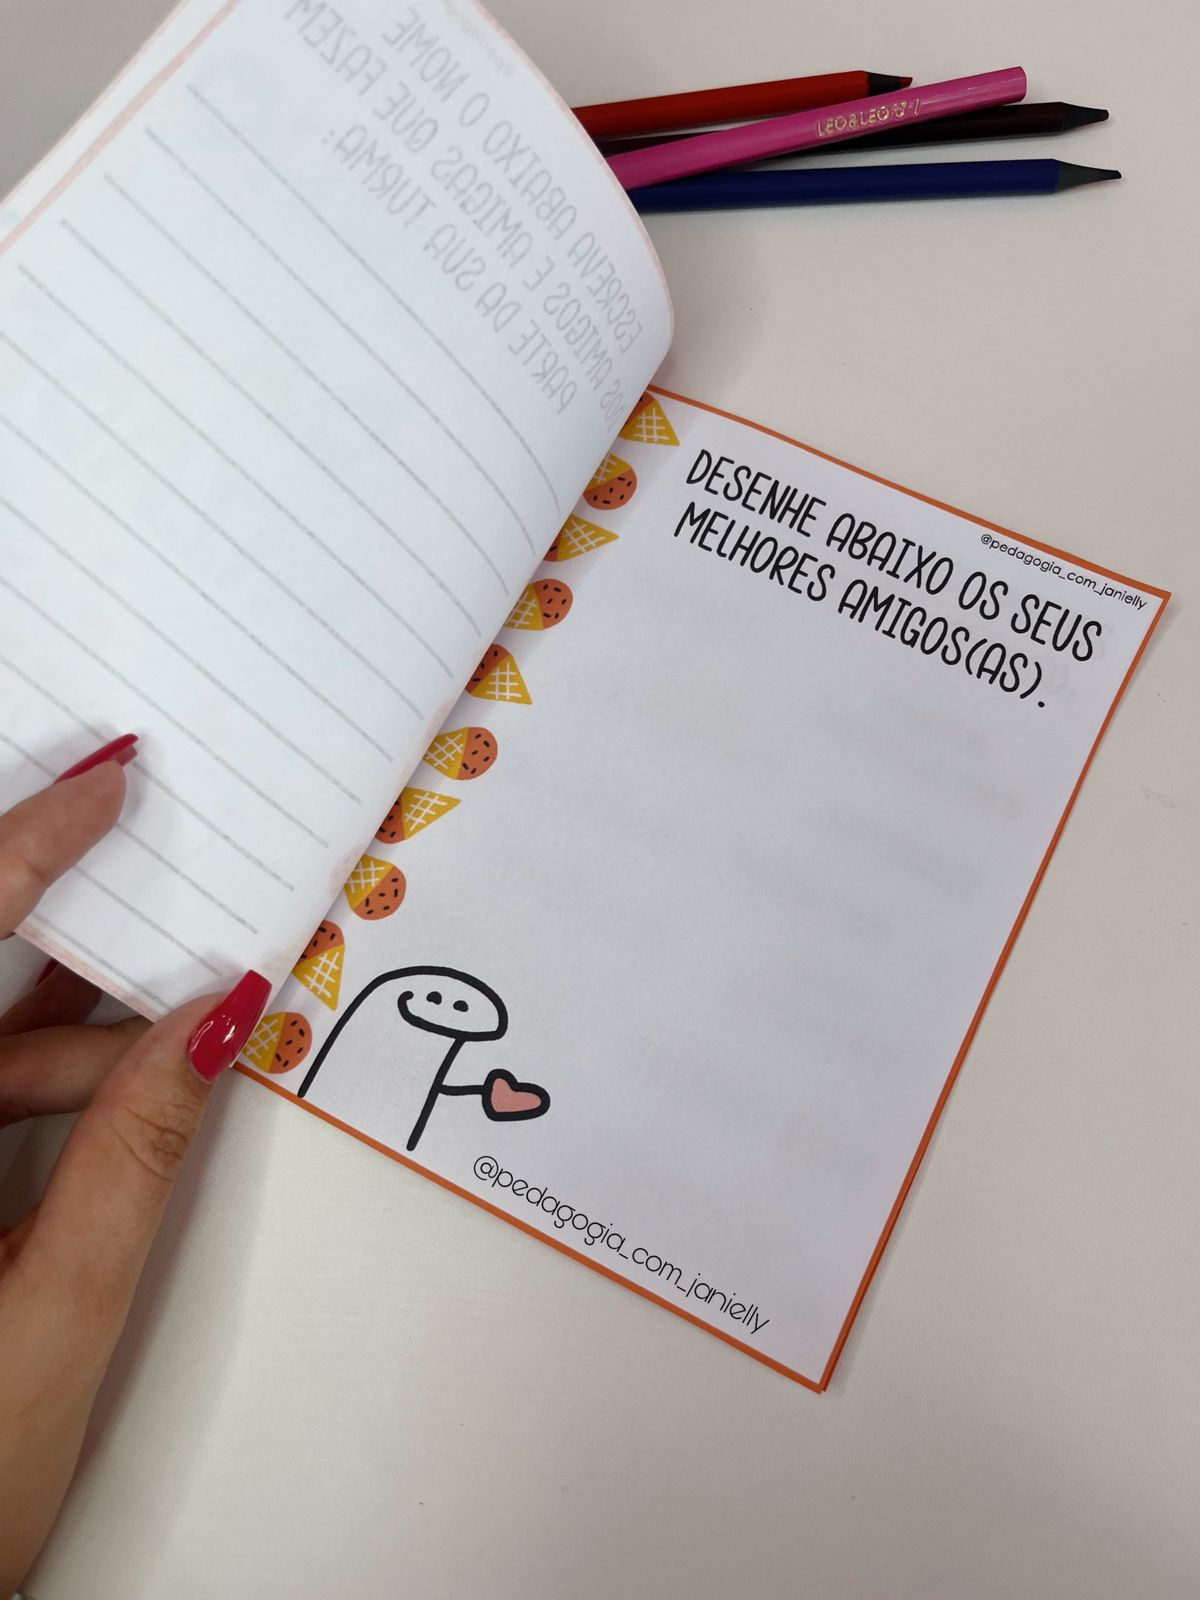 ESCREVA ABAIXO O NOME
DOS AMIGOS E AMIGAS QUE FAZEM
PARTE DA SUA TURMA:
LEO&LEO
@pedagogia_com_janielly
DESENHE ABAIXO OS SEUS
MELHORES AMIGOS(AS).
@pedagogia_com_janielly